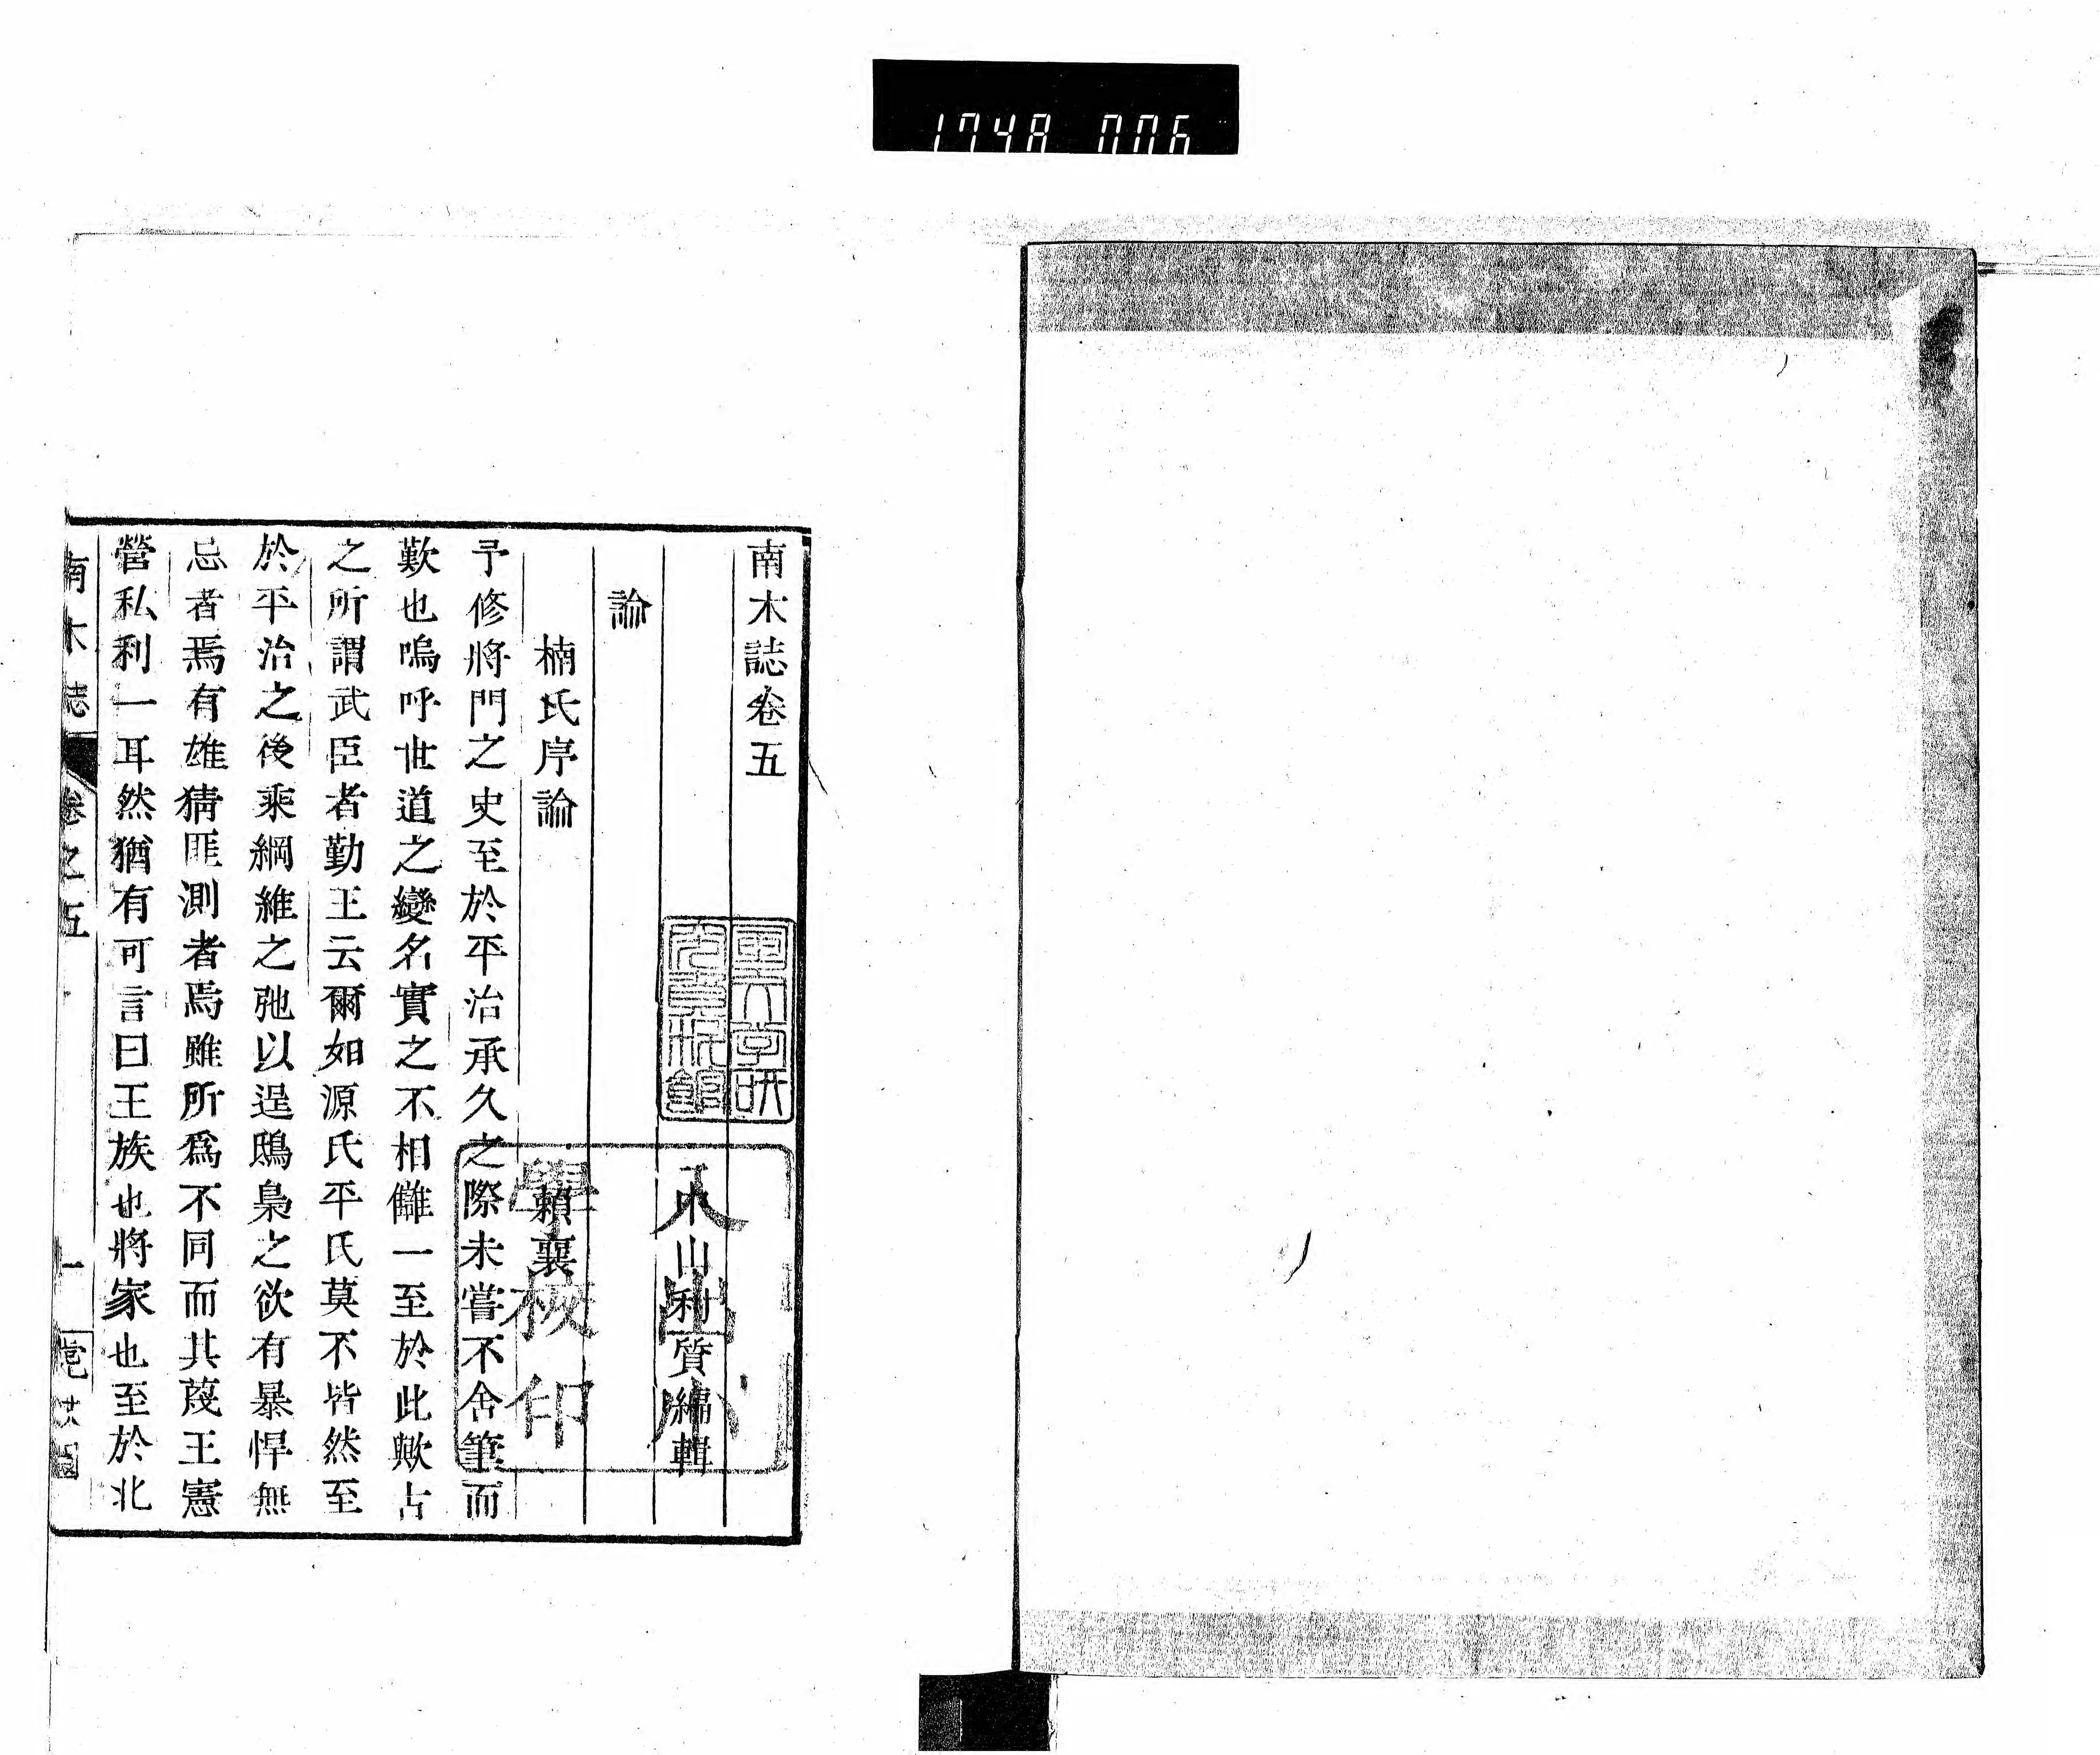 1748 006
南木誌卷五
中山利質編輯
論
楠氏序論
賴襄
予修將門之史至於平治承久之際未嘗不舍筆而
歎也嗚呼世道之變名實之不相讎一至於此歟古
之所謂武臣者勤王云爾如源氏平氏莫不皆然至
於平治之後乘綱維之弛以逞鴟梟之欲有暴悍無
忌者焉有雄猜匪測者焉雖所爲不同而共蔑王憲
營私利一耳然猶有可言曰王族也將家也至於北
南木誌
卷之五
一
學校印